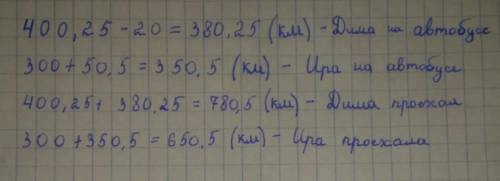 400,25 - 20 = 380,25 (км) - Дима на автобусе
300 + 50,5 = 350,5 (км) - Ира на автобусе
400,25 + 380,25 = 780,5 (км) - Дима проехал
300 + 350,5 = 650,5 (км) - Ира проехала